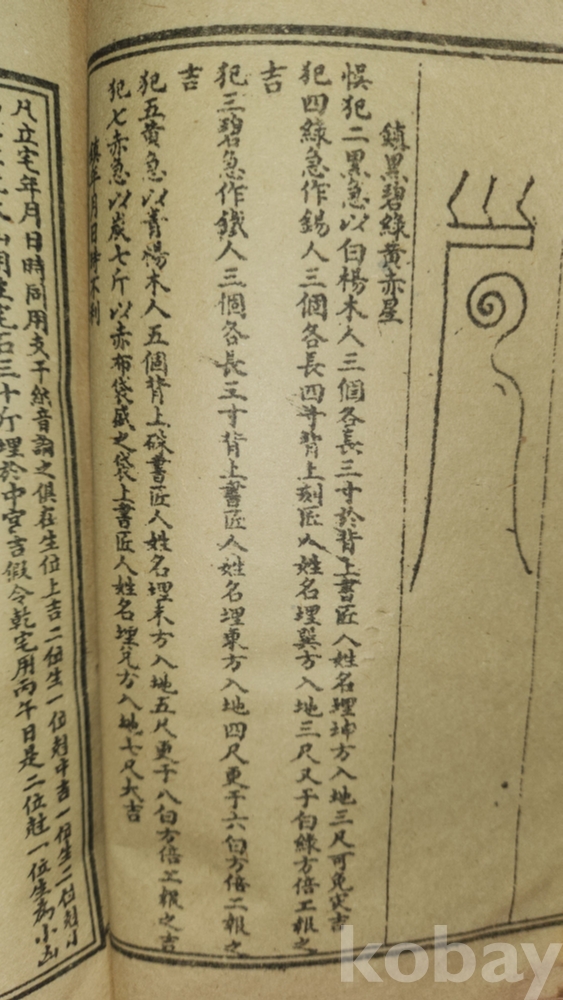 鎮黑碧綠黃赤星
悞犯二黑急以白楊木人三個各長三寸於背上書匠人姓名埋坤方入地三尺可免災吉
犯四綠急作錫人三個各長四寸背上刻匠人姓名埋巽方入地三尺又于白綠方倍工報之
吉
犯三碧急作鐵人三個各長三寸背上書匠人姓名埋東方入地四尺更于六白方倍工報之
吉
犯五黃急以青楊木人五個背上硃書匠人姓名埋未方入地五尺更于八白方倍工報之吉
犯七赤急以炭七斤以赤布袋盛之袋上書匠人姓名埋兌方入地七尺大吉
鎮年月日時不利
凡立宅年月日時同用支干納音論之俱在生位上吉二位生一位尅中吉一位生二位尅小
宅石三十斤埋於中宮吉假令乾宅用丙午日是二位尅一位生為小凶
kobay